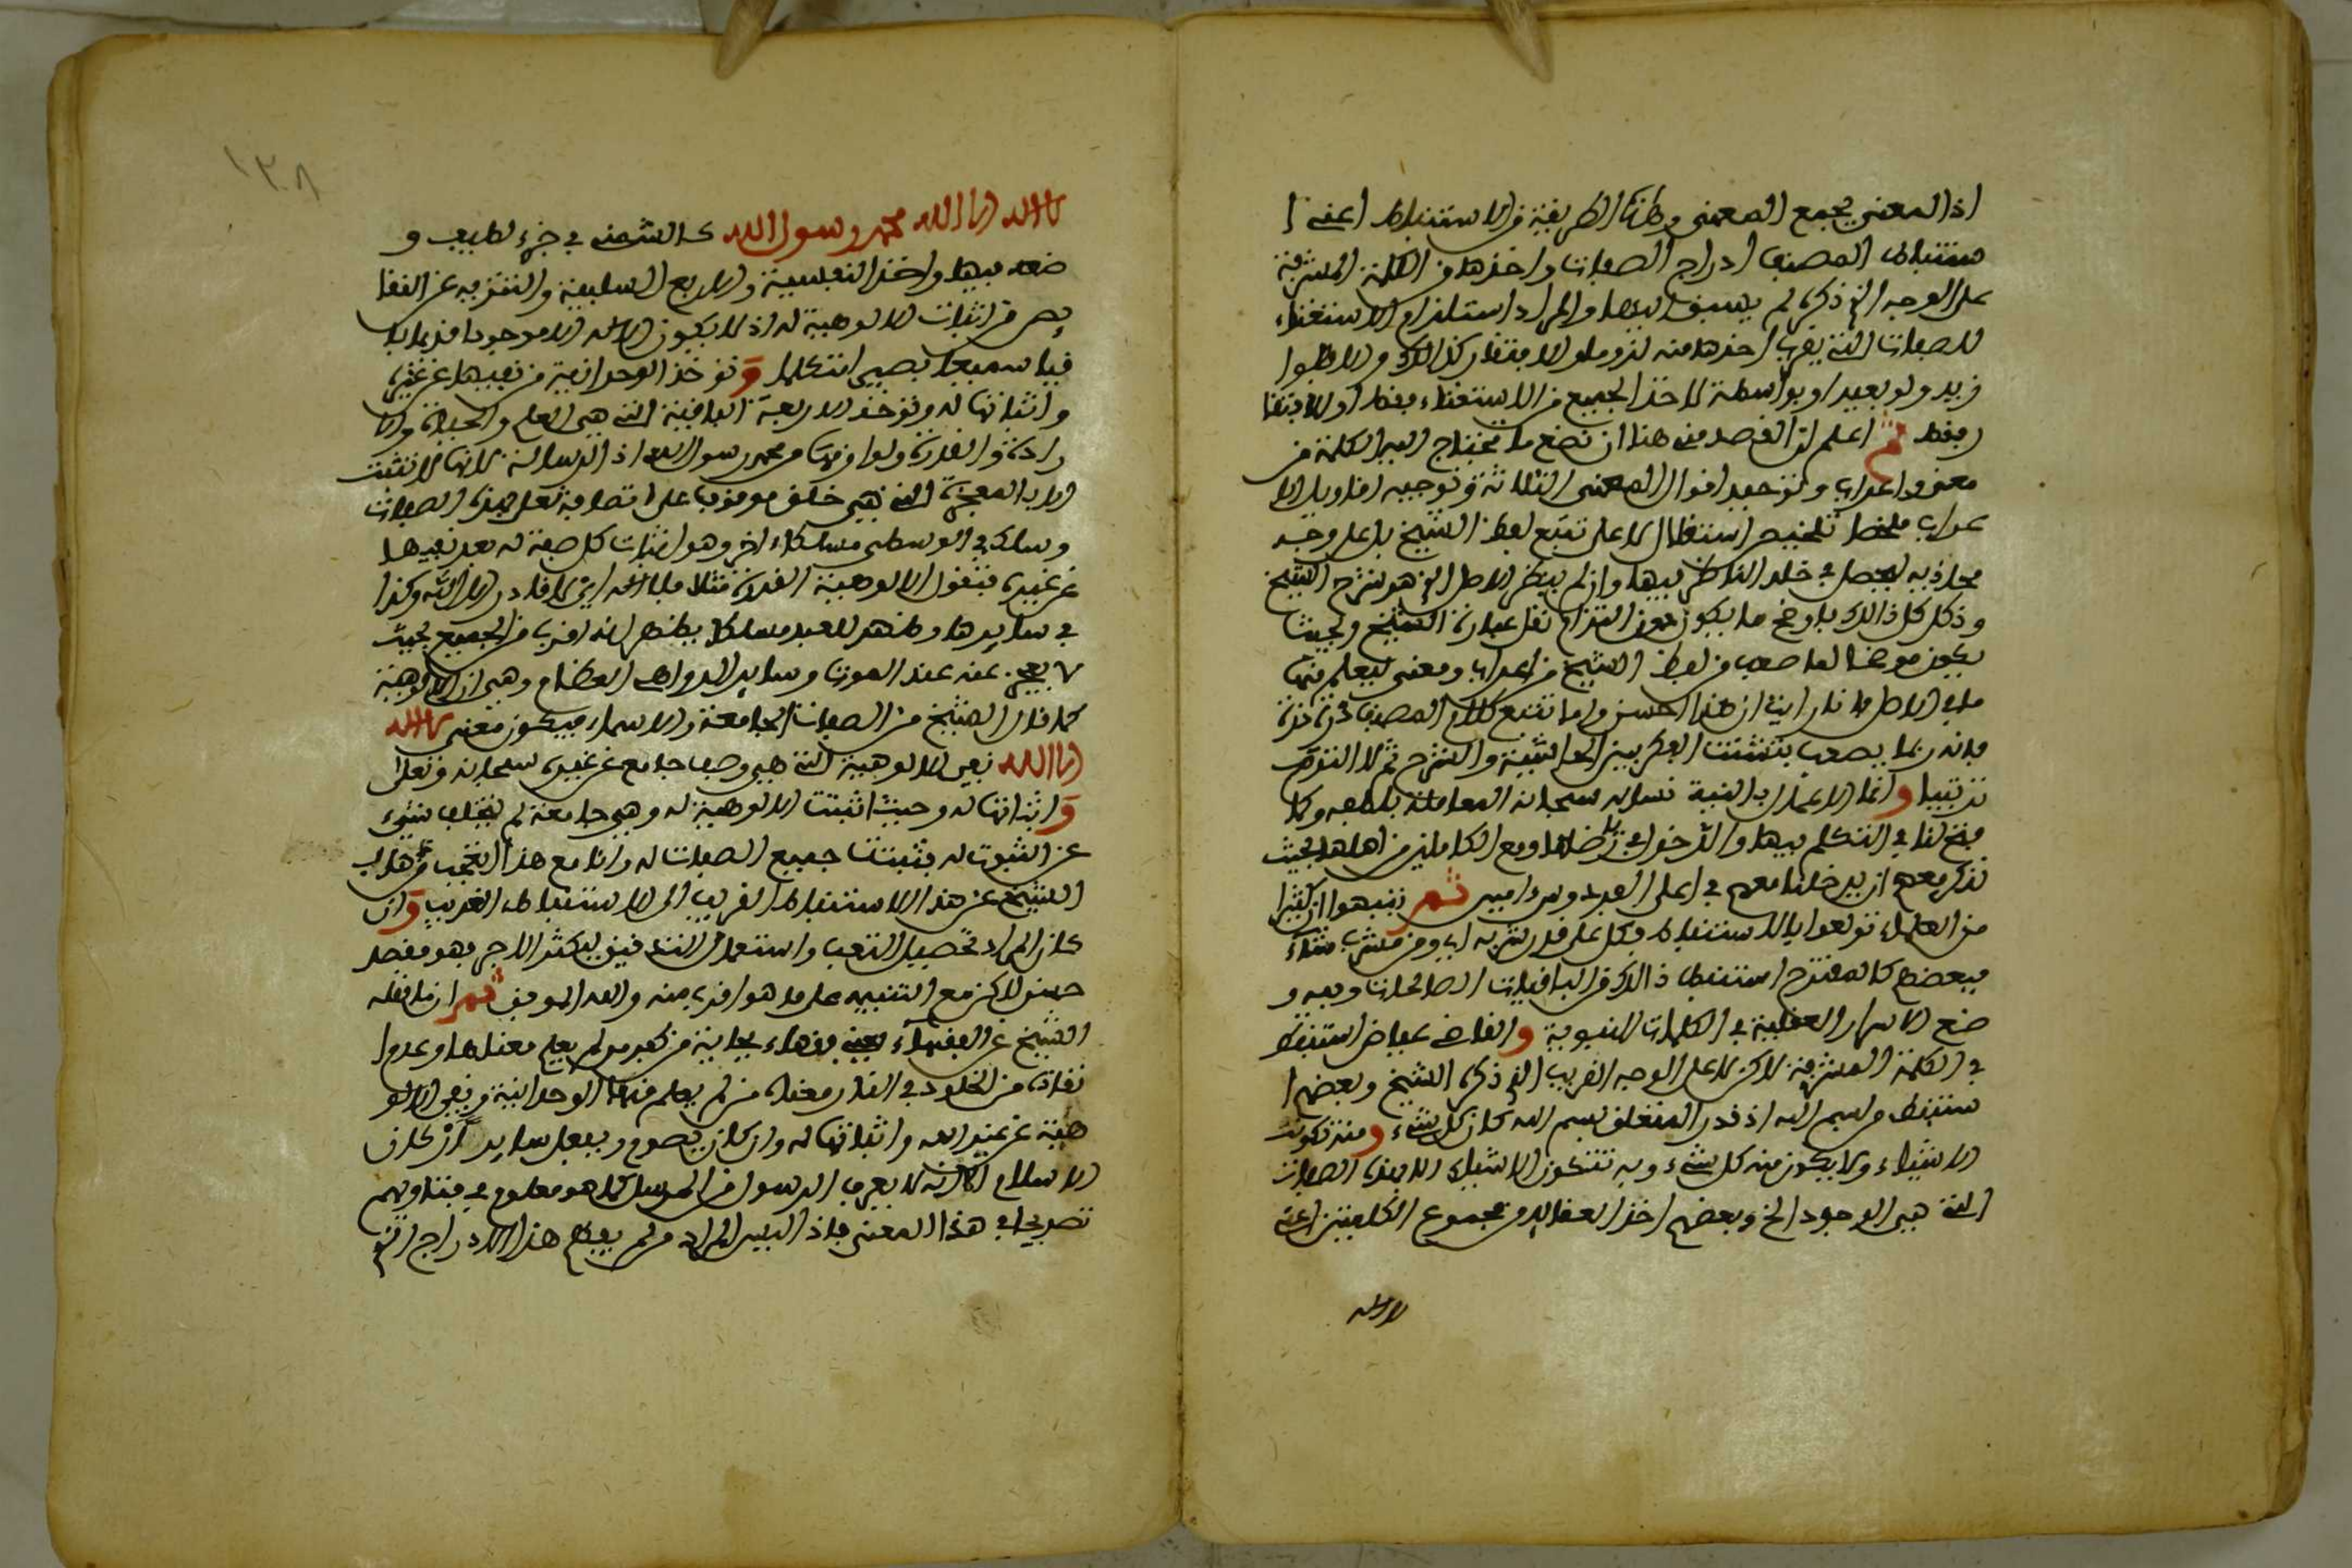 اذ المعنى يجمع المعنى وهذه الطريقة في الاستنباط اعني ا
ستنباط المصنف ادراج الصفات واخذها من الكلمة المشرفة
على الوجه الذي ذكره لم يسبق اليها والمراد استلزام الاستغناء
للصفات التي يقرب اخذها منه لزوما والافتقار كذالك والاظهر
قريب ولو ببعيد او بواسطة لاخذ الجميع من الاستغناء فقط او الافتقا
ر فقط ثم اعلم ان القصد من هنا ان نضع ما تحتاج اليه الكلمة من
معنى واعراب وتوحيد اقوال المعنى الثلاثة وتوجيه اقاويل الا
عراب ملخصا تلخيص استقلال لا على تتبع لفظ الشيخ بل على وجه
محاذ به ليحصل في خلد الناظر فيها وان لم ينظر الاصل الذي هو شرح الشيخ
وذكر كل ذالك باوضح ما يكون دون التزام نقل عبارة الشيخ وبحيث
يكون موضحا لما صعب من لفظ الشيخ من اعراب ومعنى ليعلم منها
ما في الاصل فانا راينا ان هذا احسن واما تتبع كلام المصنف ذرة ذرة
فانه ربما يصعب بتشتت الفكر بين الحاشية والشرح ثم لا التزمت
ترتيبا وانما الاعمال بالنية نساله سبحانه المعاملة بلطفه وكما
فتح لنا في التكلم فيها والدخول في بحر فضلها ومع الكاملين من اهلها بحيث
نذكر معهم ان يدخلنا معهم في اعلى الفردوس امين ثم تنبهوا ان كثيرا
من العلماء تولعوا بالاستنباط وكل على قدر شربه اي ومن مشرب شتاء
فبعضهم كالمقترح استنبط ذالك من الباقيات الصالحات وفيه و
ضع الاسرار العقلية في الكلمات النبوية والقاضي عياض استنبط
في الكلمة المشرفة لاكن لا على الوجه القريب الذي ذكره الشيخ وبعضهم ا
ستنبط من بسم الله اذ قدر المتعلق بسم الله كان كل شيء ومنه تكونت
الاشياء ولا يكون منه كل شيء وبه تتكون الاشياء الا بهذه الصفات
التي هي الوجود الخ وبعضهم اخذ العقائد من مجموع الكلمتين اعني
لا اله
١٣٨
لا اله الا الله محمد رسول الله كالشمني في جزء لطيف و
ضعه فيها واخذ النفسية والاربع السلبية والتنزيه عن النقا
يص من اثبات الالوهية له اذ لا يكون الاله الا موجودا قديما با
قيا سميعا بصيرا متكلما وتوخذ الوحدانية من نفيها عن غيره
واثباتها له وتوخذ الاربعة الباقية التي هي العلم والحياة والا
رادة والقدرة ولوازمها من محمد رسول الله اذ الرسالة لانها لا تثبت
الا بالمعجزة التي هي خلق موقوف على اتصافه تعلى بهذه الصفات
وسلك في الوسطى مسلكا اخر وهو اثبات كل صفة له بعد نفيها
عن غيره فتقول الالوهية القدرة مثلا فلا اله اي لا قادر الا الله وكذا
في سايرها وظهر للعبد مسلكا يظهر انه اقرب من الجميع بحيث
لا يعجز عنه عند الموت وساير الدواهي العظام وهي ان الالوهية
كما قال الشيخ من الصفات الجامعة والاسماء فيكون معنى لا اله
الا الله نفي الالوهية التي هي وصف جامع عن غيره سبحانه وتعلى
واثباتها له وحيث اثبتت الالوهية له وهي جامعة لم يتخلف شيء
عن الثبوت له فثبتت جميع الصفات له وانا مع هذا اتعجب من ذهاب
الشيخ عن هذا الاستنباط القريب الى الاستنباط الغريب وان
كان المراد تحصيل التعب واستعمال التدقيق ليكثر الاجر فهو مقصد
حسن لاكن مع التنبيه على ما هو اقرب منه والله الموفق ثم ان ما نقله
الشيخ عن الفقهاء يعني فقهاء بجاية من كفر من لم يعلم معناها وعدم
نفاته من الخلود في النار معناه من لم يعلم منها الوحدانية ونفي الالو
هية عن غير الله واثباتها له وان كان يصوم ويفعل ساير اركان
الاسلام الا انه لا يعرف الرسول من المرسل كما هو معلوم في فتاويهم
تصريحا في هذا المعنى فاذا ليس المراد من لم يعلم هذا الادراج الذي